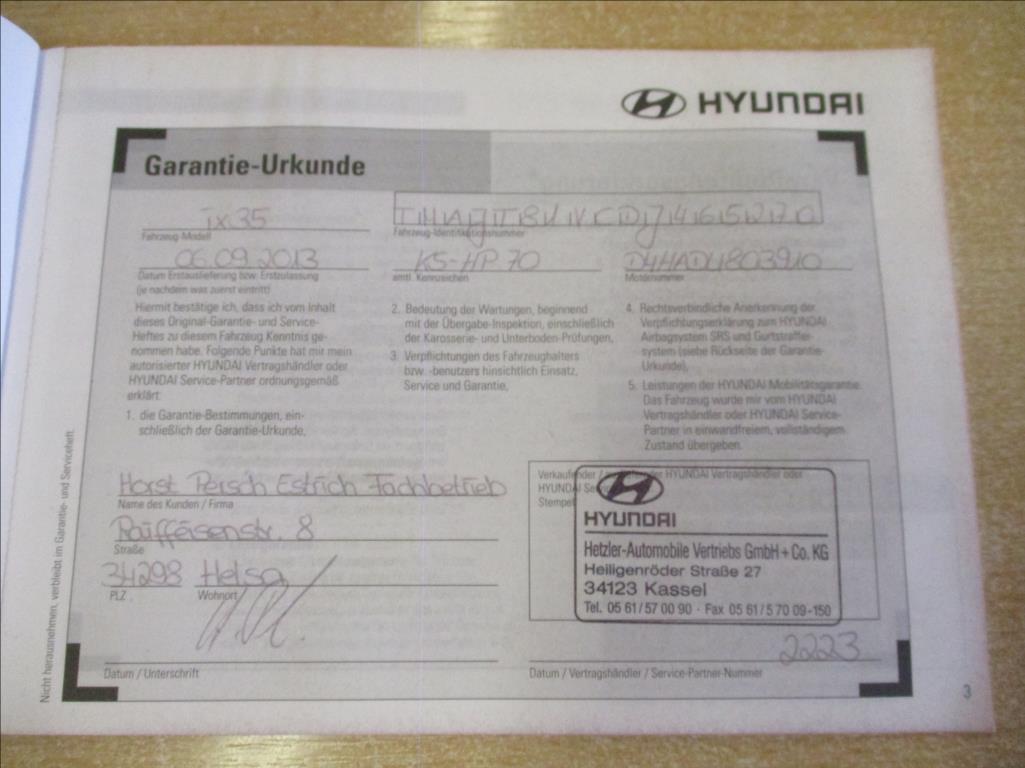 HYUNDAI
Garantie-Urkunde
ix35
Fahrzeug-Modell
Fahrzeug-Identifikationsnummer
06.09.2013
Datum Erstauslieferung bzw. Erstzulassung
(je nachdem was zuerst eintritt)
KS-HP 70
amtl. Kennzeichen
D4HADU803910
Motornummer
Hiermit bestätige ich, dass ich vom Inhalt
dieses Original-Garantie- und Service-
Heftes zu diesem Fahrzeug Kenntnis ge-
nommen habe. Folgende Punkte hat mir mein
autorisierter HYUNDAI Vertragshändler oder
HYUNDAI Service-Partner ordnungsgemäß
erklärt:
1. die Garantie-Bestimmungen, ein-
schließlich der Garantie-Urkunde.
2. Bedeutung der Wartungen, beginnend
mit der Übergabe-Inspektion, einschließlich
der Karosserie- und Unterboden-Prüfungen.
3. Verpflichtungen des Fahrzeughalters
bzw. -benutzers hinsichtlich Einsatz,
Service und Garantie.
4. Rechtsverbindliche Anerkennung der
Verpflichtungserklärung zum HYUNDAI
Airbagsystem SRS und Gurtstraffer-
system (siehe Rückseite der Garantie-
Urkunde).
5. Leistungen der HYUNDAI Mobilitätsgarantie.
Das Fahrzeug wurde mir vom HYUNDAI
Vertragshändler oder HYUNDAI Service-
Partner in einwandfreiem, vollständigem
Zustand übergeben.
Horst Persch Estrich Fachbetrieb
Name des Kunden / Firma
Raiffeisenstr. 8
Straße
34298 Helsa
PLZ Wohnort
Datum / Unterschrift
Verkaufender / HYUNDAI Vertragshändler oder
HYUNDAI
Stempel
HYUNDAI
Hetzler-Automobile Vertriebs GmbH + Co. KG
Heiligenröder Straße 27
34123 Kassel
Tel. 05 61/57 00 90 · Fax 05 61/5 70 09-150
2223
Datum / Vertragshändler / Service-Partner-Nummer
Nicht herausnehmen, verbleibt im Garantie- und Serviceheft.
3